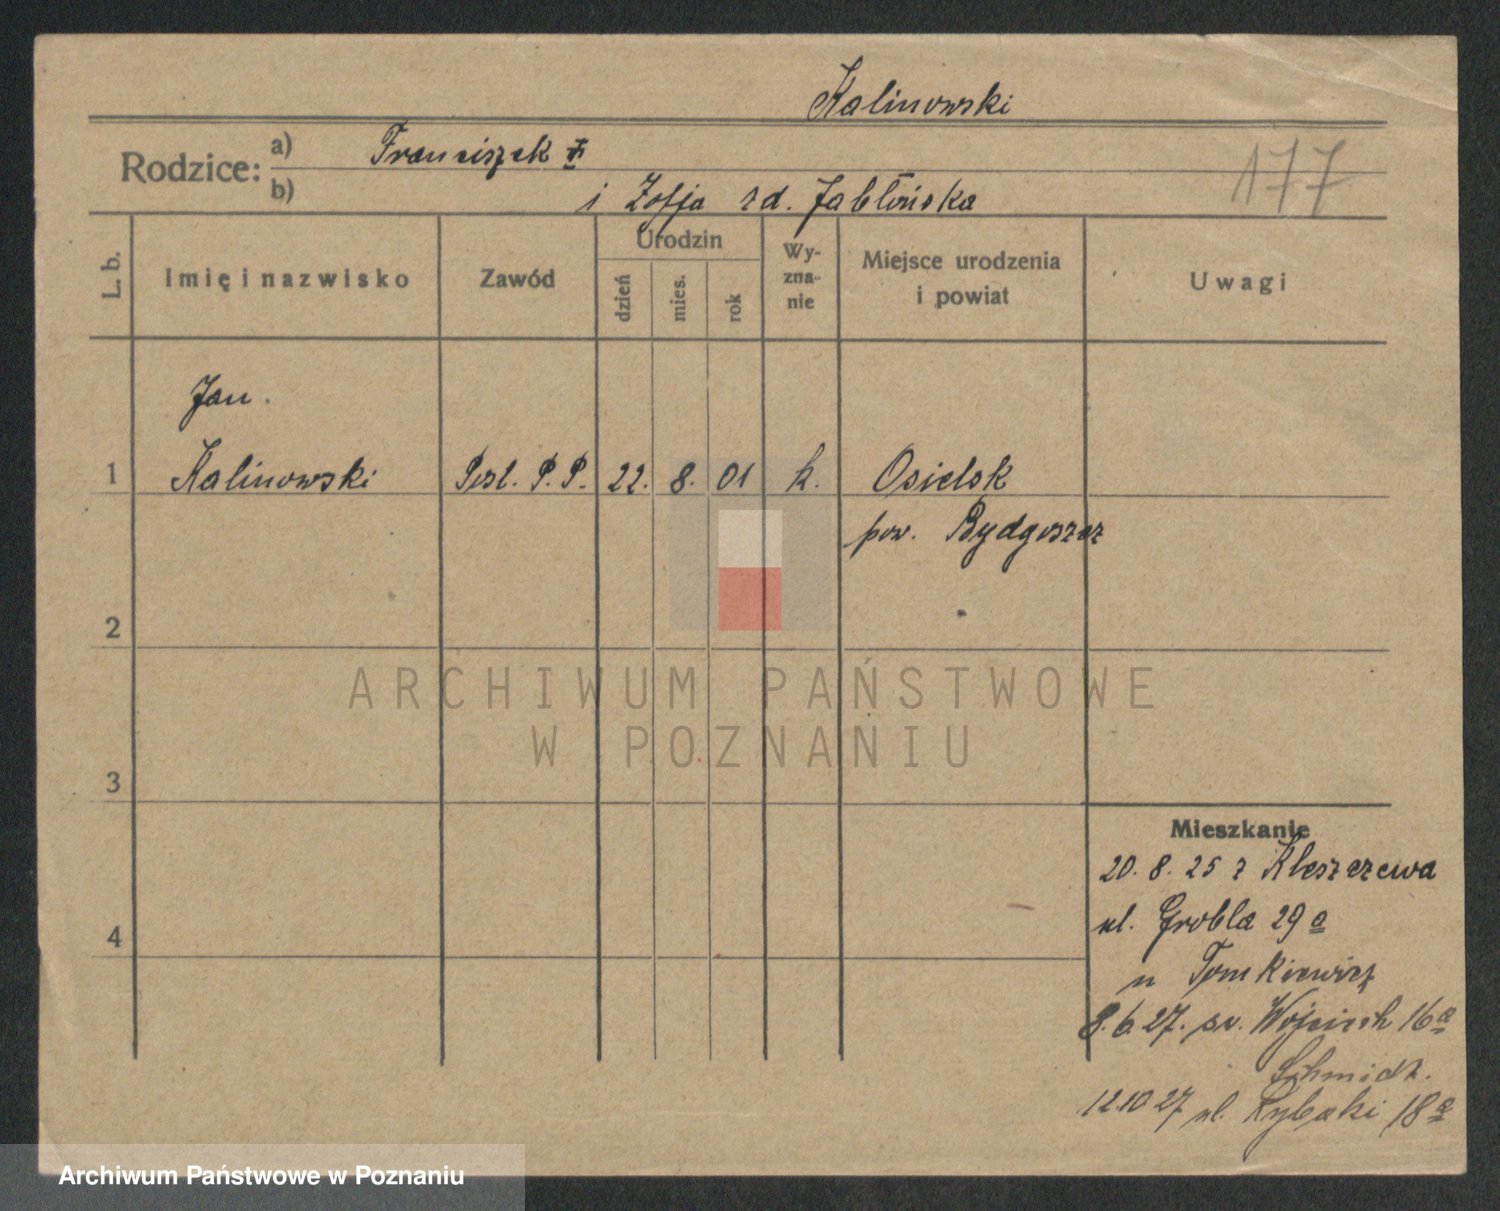 Kalinowski
Rodzice: a) Franciszek
b) i Zofja zd. Jabłońska
177
L. b.
Imię i nazwisko
Zawód
Urodzin
dzień
mies.
rok
Wy-
zna-
nie
Miejsce urodzenia
i powiat
Uwagi
Jan.
1 Kalinowski Post. P. P. 22. 8. 01 k. Osielsk
pow. Bydgoszcz
2
ARCHIWUM PAŃSTWOWE
W POZNANIU
3
Mieszkanie
20. 8. 25 z Kleszczewa
ul. Grobla 29 a
4
u Tomkiewicz
8. 6. 27. św. Wojciech 16 a
Schmidt.
12.10 27 ul. Rybaki 18 a
Archiwum Państwowe w Poznaniu